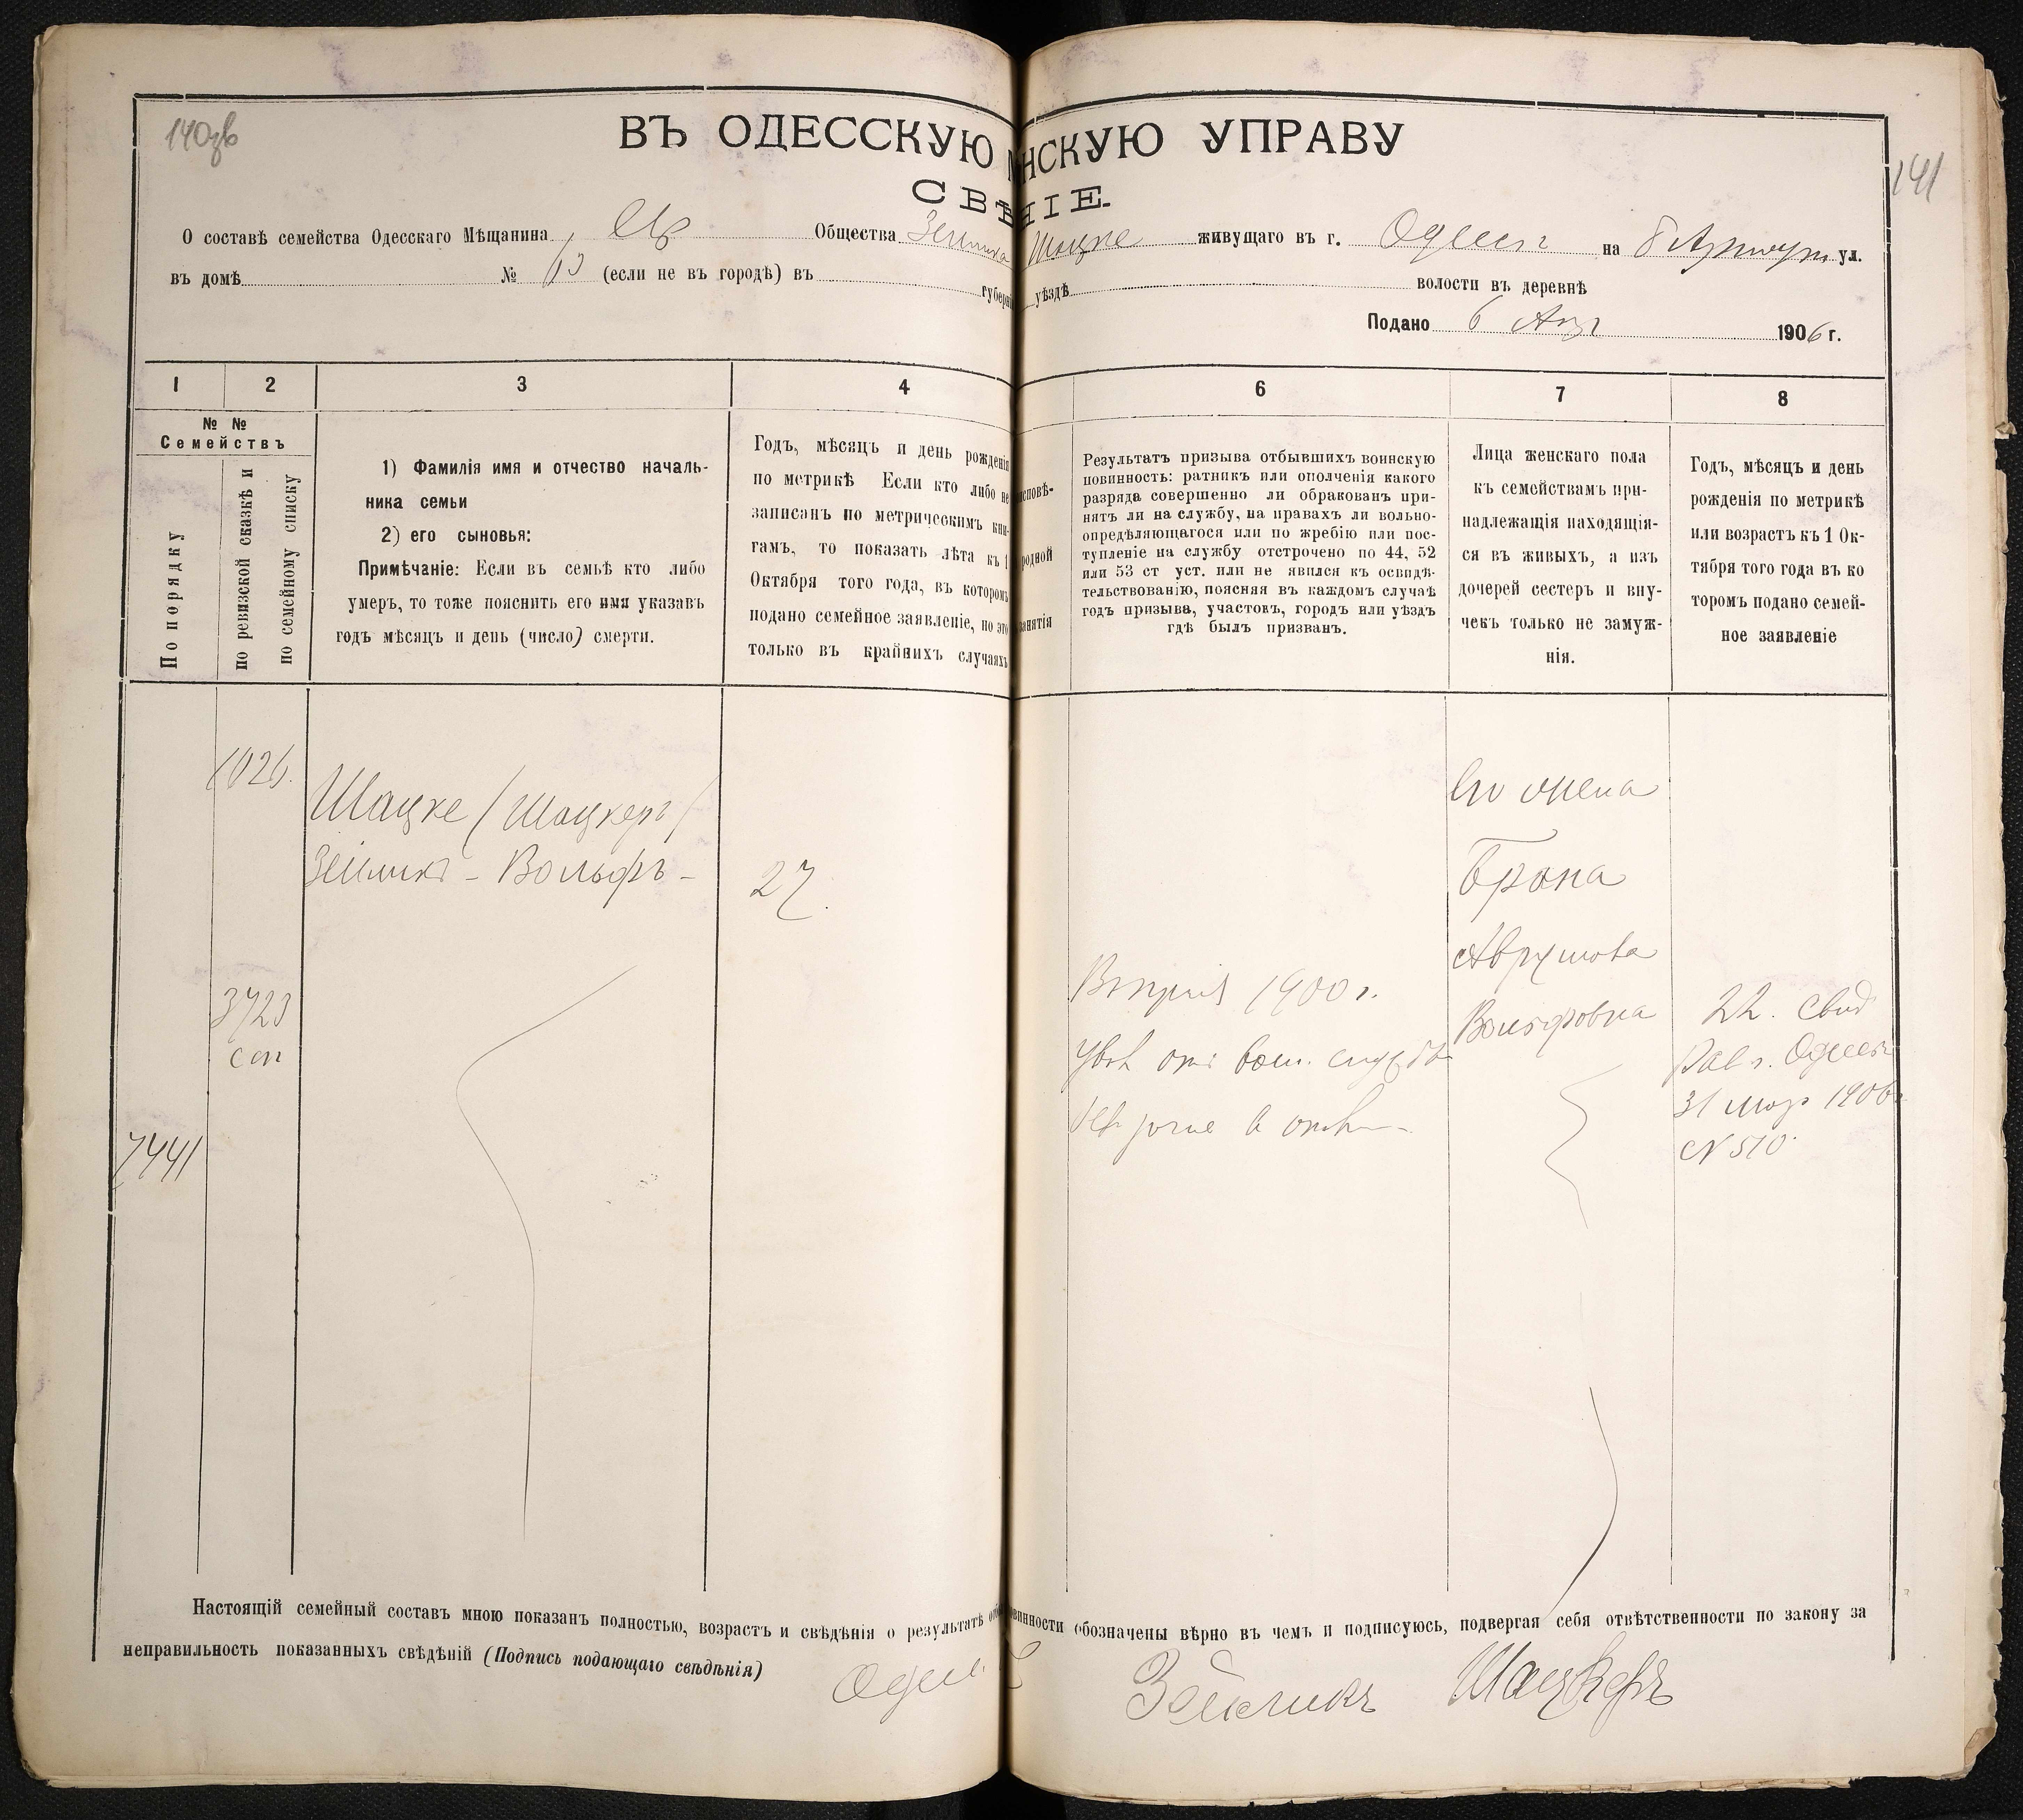 140об
141
ВЪ ОДЕССКУЮ НСКУЮ УПРАВУ
СВѢНІЕ.
О составѣ семейства Одесскаго Мѣщанина Евр Общества Зейлика Шацке живущаго въ г. Одессѣ на Б Арнаут ул.
въ домѣ № 13 (если не въ городѣ) въ губерн уѣздѣ волости въ деревнѣ
Подано 6 Апр 1906 г.
1 2 3 4 6 7 8
№ №
Семействъ
По порядку
по ревизской сказкѣ и
по семейному списку
1) Фамилія имя и отчество началь-
ника семьи
2) его сыновья:
Примѣчаніе: Если въ семьѣ кто либо
умеръ, то тоже пояснить его имя указавъ
годъ мѣсяцъ и день (число) смерти.
Годъ, мѣсяцъ и день рожденія
по метрикѣ Если кто либо не
записанъ по метрическимъ кни-
гамъ, то показать лѣта къ 1
Октября того года, въ которомъ
подано семейное заявленіе, но это
только въ крайнихъ случаяхъ
исповѣ-
родной
занятія
Результатъ призыва отбывшихъ воинскую
повинность: ратникъ или ополченія какого
разряда совершенно ли обракованъ при-
нятъ ли на службу, на правахъ ли вольно-
опредѣляющагося или по жребію или пос-
тупленіе на службу отстрочено по 44, 52
или 53 ст уст. или не явился къ освидѣ-
тельствованію, поясняя въ каждомъ случаѣ
годъ призыва, участокъ, городъ или уѣздъ
гдѣ былъ призванъ.
Лица женскаго пола
къ семействамъ при-
надлежащія находящія-
ся въ живыхъ, а изъ
дочерей сестеръ и вну-
чекъ только не замуж-
нія.
Годъ, мѣсяцъ и день
рожденія по метрикѣ
или возрастъ къ 1 Ок-
тября того года въ ко
торомъ подано семей-
ное заявленіе
1026.
Шацке (Шацкеръ)
Зейликъ - Вольфъ -
27.
3723
сп
7441
1900 г.
отъ воин. службы
Его жена
Брана
Вольфовна
22. Свид
Рав г. Одессы
31 мар 1906 г.
N 510.
Настоящій семейный составъ мною показанъ полностью, возрастъ и свѣдѣнія о результатѣ отб овинности обозначены вѣрно въ чемъ и подписуюсь, подвергая себя отвѣтственности по закону за
неправильность показанныхъ свѣдѣній (Подпись подающаго свѣдѣнія)
Зейликъ Шацкеръ